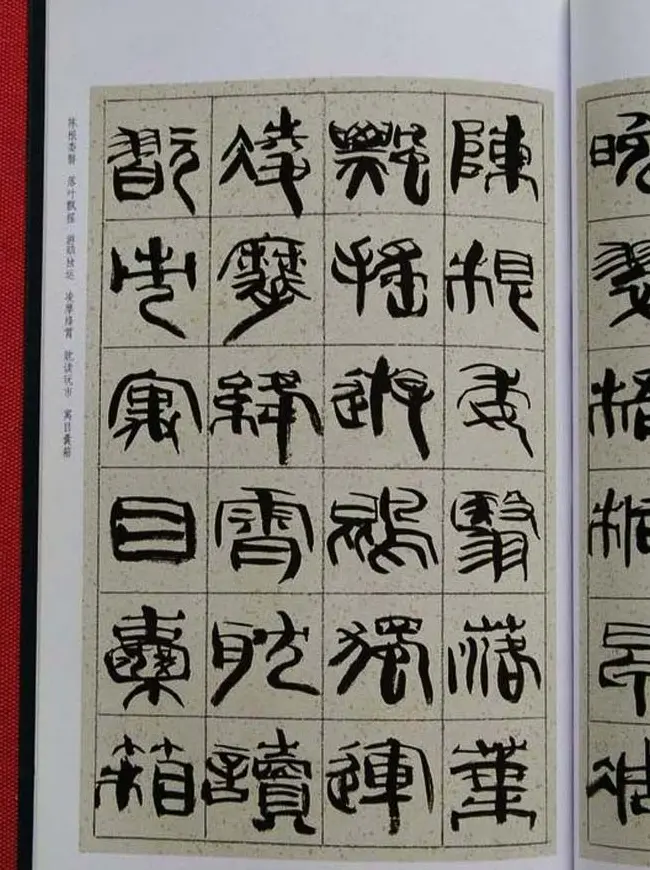 晚翠梧桐早凋
陳根委翳落葉
飄搖遊鵾獨運
凌摩絳霄耽讀
翫市寓目囊箱
陈根委翳 落叶飘摇 游鹍独运 凌摩绛霄 耽读玩市 寓目囊箱